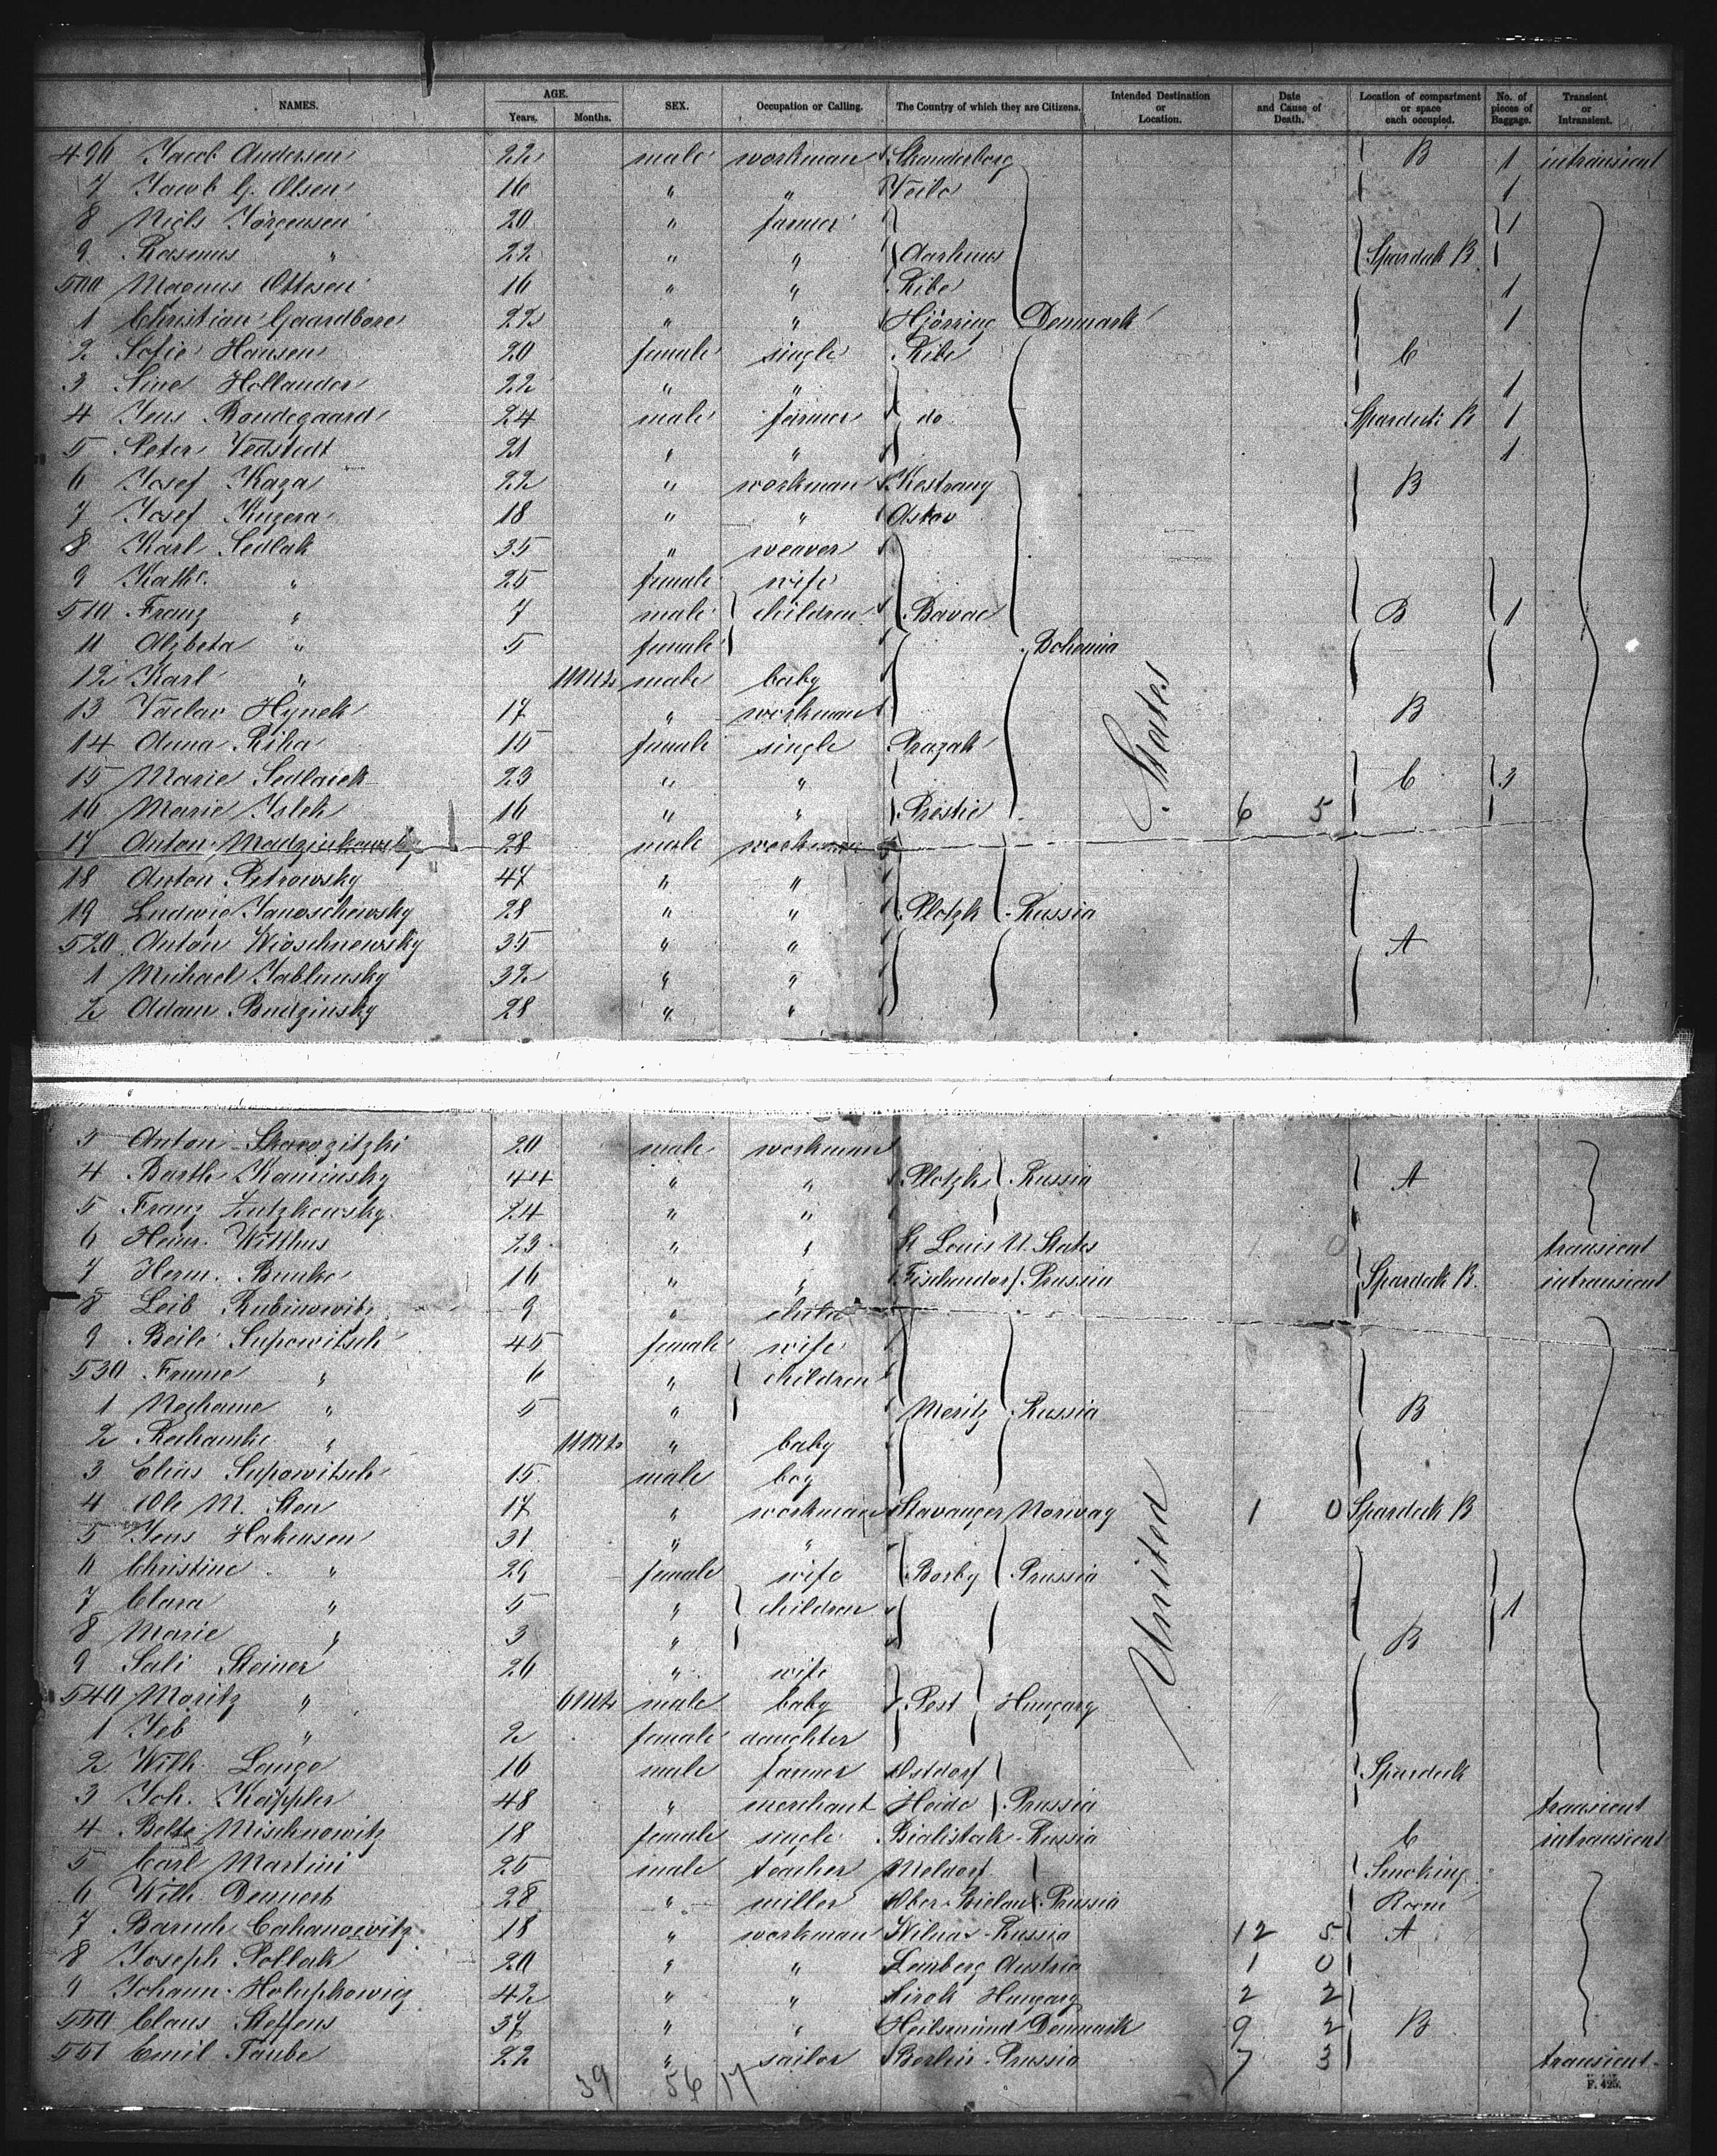 NAMES. AGE. Years. Months. SEX. Occupation or Calling. The Country of which they are Citizens. Intended Destination or Location. Date and Cause of Death. Location of compartment or space each occupied. No. of pieces of Baggage. Transient or Intransient.
496 Jacob Andersen 22 male workman Skanderborg B 1 intransient
7 Jacob G. Olsen 16 " " Veile 1
8 Niels Jörgensen 20 " farmer 1
9 Rasmus " 22 " " Aarhuus Spardeck B
500 Magnus Ottesen 16 " " Ribe 1
1 Christian Gaardbore 22 " " Hjörring Denmark 1
2 Sofie Hansen 20 female single Ribe C
3 Sine Hollander 22 " " 1
4 Jens Bondegaard 24 male farmer do Spardeck B 1
5 Peter Vedstedt 21 " " 1
6 Josef Kaza 22 " workman Kestrany B
7 Josef Kuzera 18 " " Ostov
8 Karl Sedlak 35 " weaver
9 Kath. " 25 female wife
510 Franz " 7 male children Bavac B 1
11 Alzbeta " 5 female Bohemia
12 Karl " 11 Mts male baby
13 Vaclav Hynek 17 " workman B
14 Anna Riha 15 female single Prazak
15 Marie Sedlacek 23 " " C 3
16 Marie Islek 16 " " Prestic 6 5
17 Anton Madzinkowsky 28 male workman
18 Anton Petrowsky 47 " "
19 Ludwig Janoschewsky 28 " " Plotzk Russia
520 Anton Wioschnewsky 35 " " A
1 Michael Jablunsky 32 " "
2 Adam Budzinsky 28 " "
States
3 Anton 20 male workman
4 Barth Kaminsky 44 " " Plotzk Russia A
5 Franz Lutzkowsky 24 " "
6 Heinr. Witthus 23 " " St Louis U. States transient
7 Herm. Bunke 16 " " Fischendorf Prussia Spardeck B. intransient
8 Leib Rubinowitz 9 " child
9 Beile Supowitsch 45 female wife
530 Frume " 6 " children
1 Nechame " 5 " Meritz Russia B
2 " 11 Mts " baby
3 Elias Supowitsch 15 male boy
4 Ole M. Sten 17 " workman Stavanger Norway 1 0 Spardeck B
5 Jens Hakensen 31 " "
6 Christine " 29 female wife Borby Prussia
7 Clara " 5 " children 1
8 Marie " 3 " B
9 Sali Steiner 26 " wife
540 Moritz " 6 Mts male baby Pest Hungary
1 Jeb " 2 female daughter
2 Wilh. Lange 16 male farmer Ostdorf Spardeck
3 Joh. Käppler 48 " merchant Heide Prussia transient
4 Mischnowitz 18 female single Bialistok Russia C intransient
5 Carl Martini 25 male teacher Meldorf Smoking
6 Wilh. Dennert 28 " miller Ober Bielau Prussia Room
7 Baruch Cahanowitz 18 " workman Wilna Russia 12 5 A
8 Joseph Pollak 20 " " Lemberg Austria 1 0
9 Johann Holuphowicz 42 " " Sirok Hungary 2 2
550 Claus Steffens 37 " " Heilsmind Denmark 9 2 B
551 Emil Taube 22 " sailor Berlin Prussia 7 3 transient
United
39 56 17
F. 425.